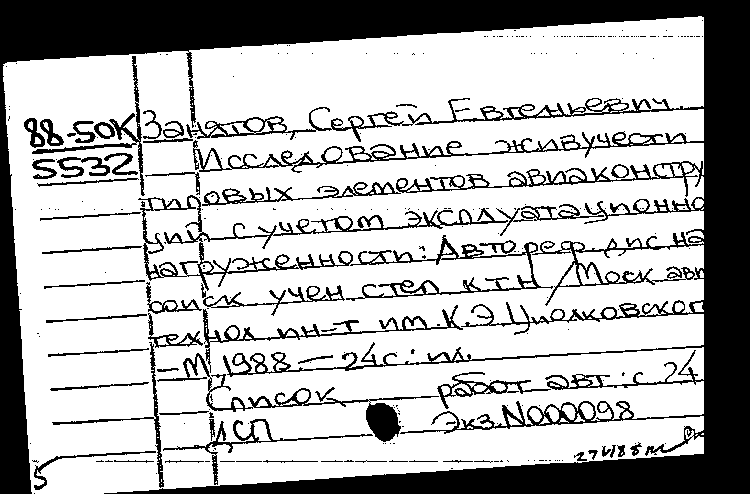 88-50К Занятов, Сергей Евгеньевич
5532 Исследование живучести
типовых элементов авиаконстру
ций с учетом эксплуатационно
нагруженности: Автореф. дис на
соиск учен степ к.т.н / Моск авт
технол ин-т им. К.Э. Циолковского
– М, 1988. – 24с.: ил.
Список работ авт.: с 24
ДСП Экз. N000098
5